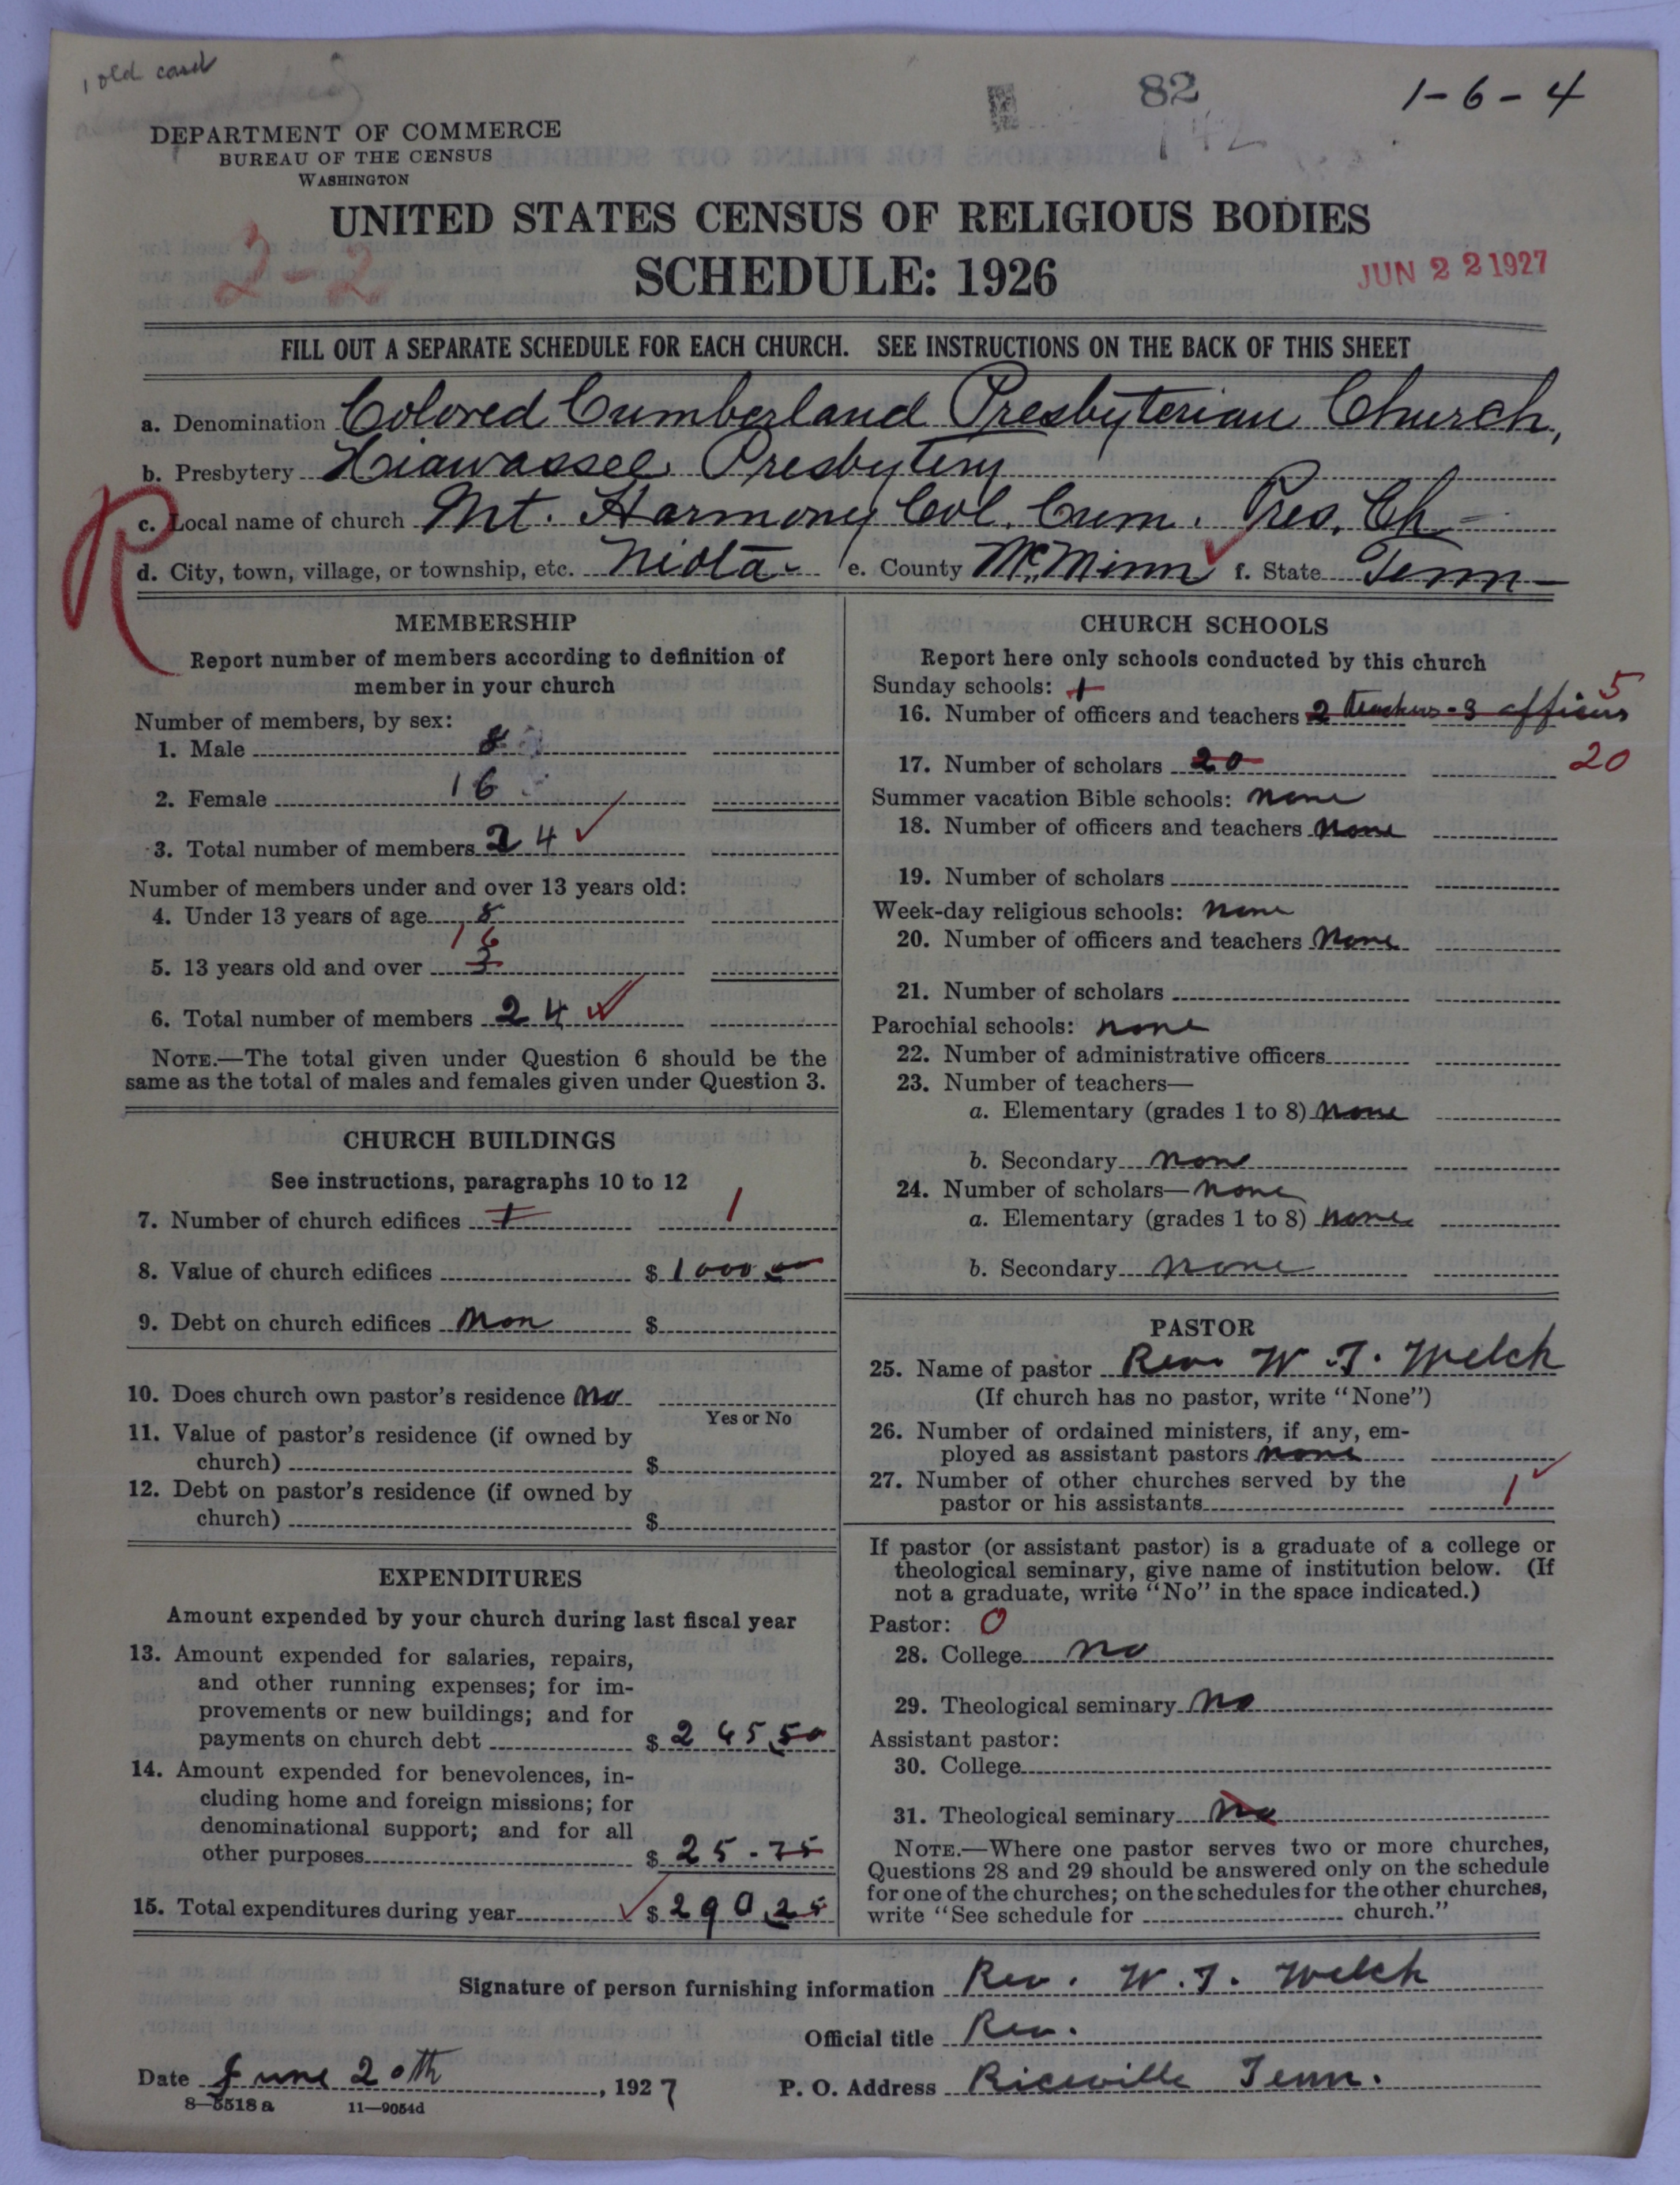 1 old card
82
142
1-6-4
DEPARTMENT OF COMMERCE
BUREAU OF THE CENSUS
WASHINGTON
UNITED STATES CENSUS OF RELIGIOUS BODIES
2-2
SCHEDULE: 1926
JUN 22 1927
FILL OUT A SEPARATE SCHEDULE FOR EACH CHURCH. SEE INSTRUCTIONS ON THE BACK OF THIS SHEET
a. Denomination Colored Cumberland Presbyterian Church,
b. Presbytery Hiawassee Presbytery
R
c. Local name of church Mt. Harmony Col. Cum. Pres. Ch-
d. City, town, village, or township, etc. Niota- e. County McMinn f. State Tenn-
MEMBERSHIP
Report number of members according to definition of
member in your church
Number of members, by sex:
1. Male 8
2. Female 16
3. Total number of members 24
Number of members under and over 13 years old:
4. Under 13 years of age 8
16
5. 13 years old and over 3
6. Total number of members 24
NOTE.—The total given under Question 6 should be the
same as the total of males and females given under Question 3.
CHURCH BUILDINGS
See instructions, paragraphs 10 to 12
7. Number of church edifices 1 1
8. Value of church edifices $ 1000.00
9. Debt on church edifices Non $
10. Does church own pastor's residence No
Yes or No
11. Value of pastor's residence (if owned by
church) $
12. Debt on pastor's residence (if owned by
church) $
EXPENDITURES
Amount expended by your church during last fiscal year
13. Amount expended for salaries, repairs,
and other running expenses; for im-
provements or new buildings; and for
payments on church debt $ 265.50
14. Amount expended for benevolences, in-
cluding home and foreign missions; for
denominational support; and for all
other purposes $ 25-75
15. Total expenditures during year $ 290.25
CHURCH SCHOOLS
Report here only schools conducted by this church
Sunday schools: 1
5
16. Number of officers and teachers 2 teachers-3 officers
17. Number of scholars 20 20
Summer vacation Bible schools: none
18. Number of officers and teachers none
19. Number of scholars
Week-day religious schools: none
20. Number of officers and teachers None
21. Number of scholars
Parochial schools: none
22. Number of administrative officers
23. Number of teachers—
a. Elementary (grades 1 to 8) None
b. Secondary none
24. Number of scholars— none
a. Elementary (grades 1 to 8) none
b. Secondary none
PASTOR
25. Name of pastor Rev. W.T. Welch
(If church has no pastor, write "None")
26. Number of ordained ministers, if any, em-
ployed as assistant pastors none
27. Number of other churches served by the
pastor or his assistants 1
If pastor (or assistant pastor) is a graduate of a college or
theological seminary, give name of institution below. (If
not a graduate, write "No" in the space indicated.)
Pastor: 0
28. College no
29. Theological seminary No
Assistant pastor:
30. College
31. Theological seminary No
NOTE.—Where one pastor serves two or more churches,
Questions 28 and 29 should be answered only on the schedule
for one of the churches; on the schedules for the other churches,
write "See schedule for church."
Signature of person furnishing information Rev. W.T. Welch
Official title Rev.
Date June 20th, 1927 P. O. Address Riceville Tenn.
8—5518 a 11—9054d